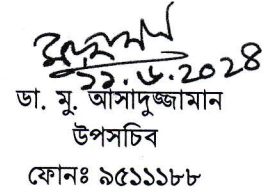 ১১.৬.2024
ডা. মু. আসাদুজ্জামান
উপসচিব
ফোনঃ ৯৫১১১৮৮